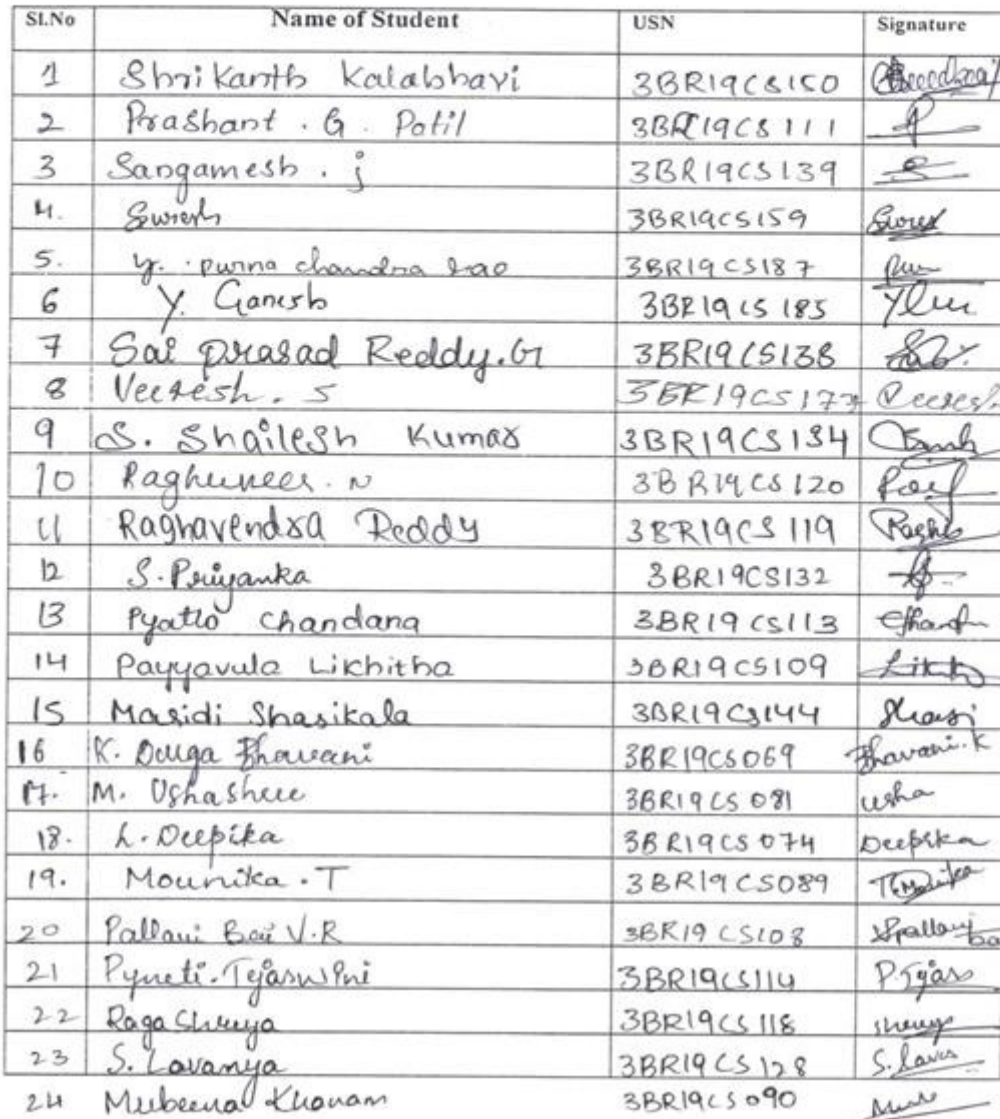 Sl.No Name of Student USN Signature
1 Shrikanth Kalabhavi 3BR19CS150
2 Prashant . G . Patil 3BR19CS111
3 Sangamesh . j 3BR19CS139
4. Suresh 3BR19CS159
5. y. purna chandra rao 3BR19CS187
6 Y. Ganesh 3BR19CS185
7 Sai prasad Reddy.G 3BR19CS138
8 Veeresh . S 3BR19CS177 Veeresh
9 S. Shailesh Kumar 3BR19CS134
10 Raghuveer . N 3BR19CS120
11 Raghavendra Reddy 3BR19CS119
12 S. Priyanka 3BR19CS132
13 Pyatlo Chandana 3BR19CS113
14 Payyavula Likhitha 3BR19CS109
15 Masidi Shasikala 3BR19CS144 Shasi
16 K. Durga Bhavani 3BR19CS069 Bhavani.K
17. M. Ushashree 3BR19CS081 usha
18. L. Deepika 3BR19CS074 Deepika
19. Mounika . T 3BR19CS089
20 Pallavi Bai V.R 3BR19CS108
21 Pyneti. Tejaswini 3BR19CS114 P. Tejas
22 Raga Shreya 3BR19CS118
23 S. Lavanya 3BR19CS128
24 Mubeena Khanam 3BR19CS090